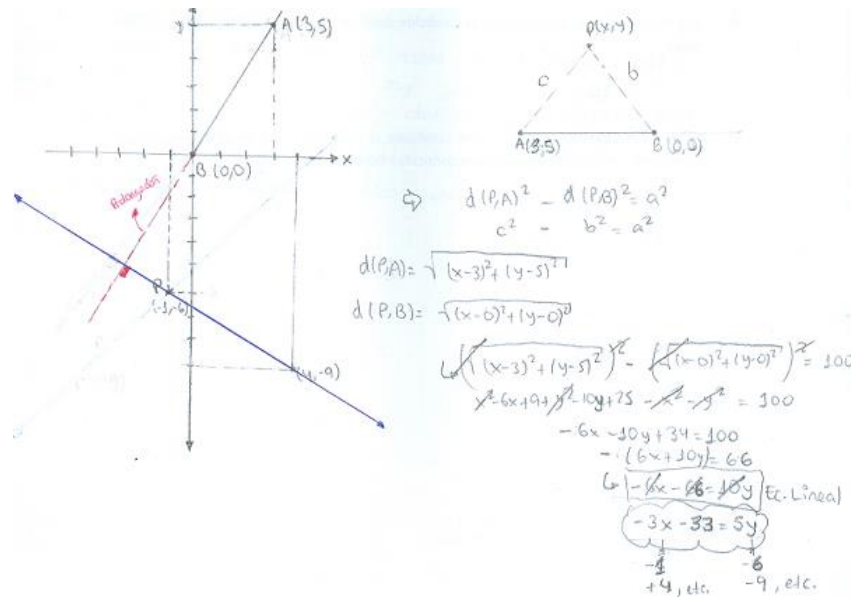 y
A(3,5)
x
B(0,0)
Prolongados
P
(-1,-6)
(4,-9)
P(x,y)
c
b
A(3,5)
B(0,0)
⇨ d(P,A)² - d(P,B)² = a²
c² - b² = a²
d(P,A)= √(x-3)²+(y-5)²
d(P,B)= √(x-0)²+(y-0)²
↳ (√(x-3)²+(y-5)²)² - (√(x-0)²+(y-0)²)² = 100
x²-6x+9+y²-10y+25 - x² - y² = 100
-6x-10y+34=100
-(6x+10y)=66
↳ -6x-66=10y Ec. Lineal
-3x-33=5y
-1 -6
+4, etc. -9, etc.